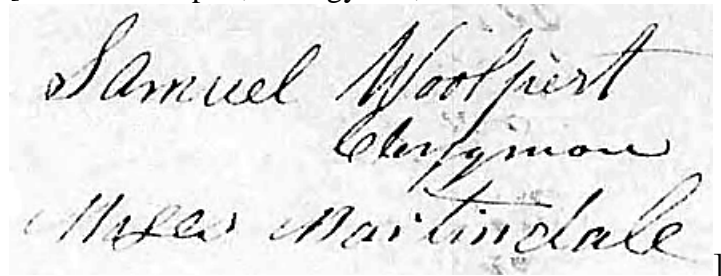 Samuel Woolpert
Clergyman
Martindale
]